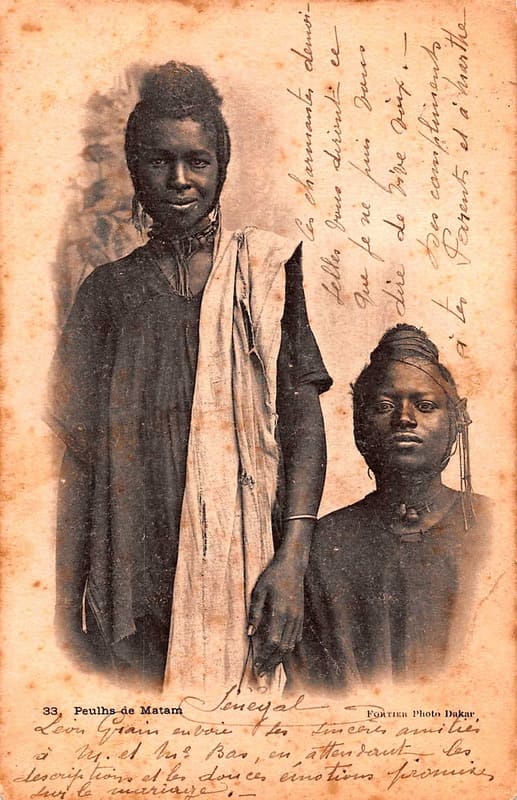 Ces charmantes demoi-
selles vous diront ce
que je ne puis vous
dire de vive voix. —
Mes compliments
à tes Parents et à Marthe
33. Peulhs de Matam
Sénégal
FORTIER Photo Dakar
Léon Grain envoie ses sincères amitiés
à M. et Me Bas, en attendant les
descriptions et les douces émotions promises
sur le mariage. —